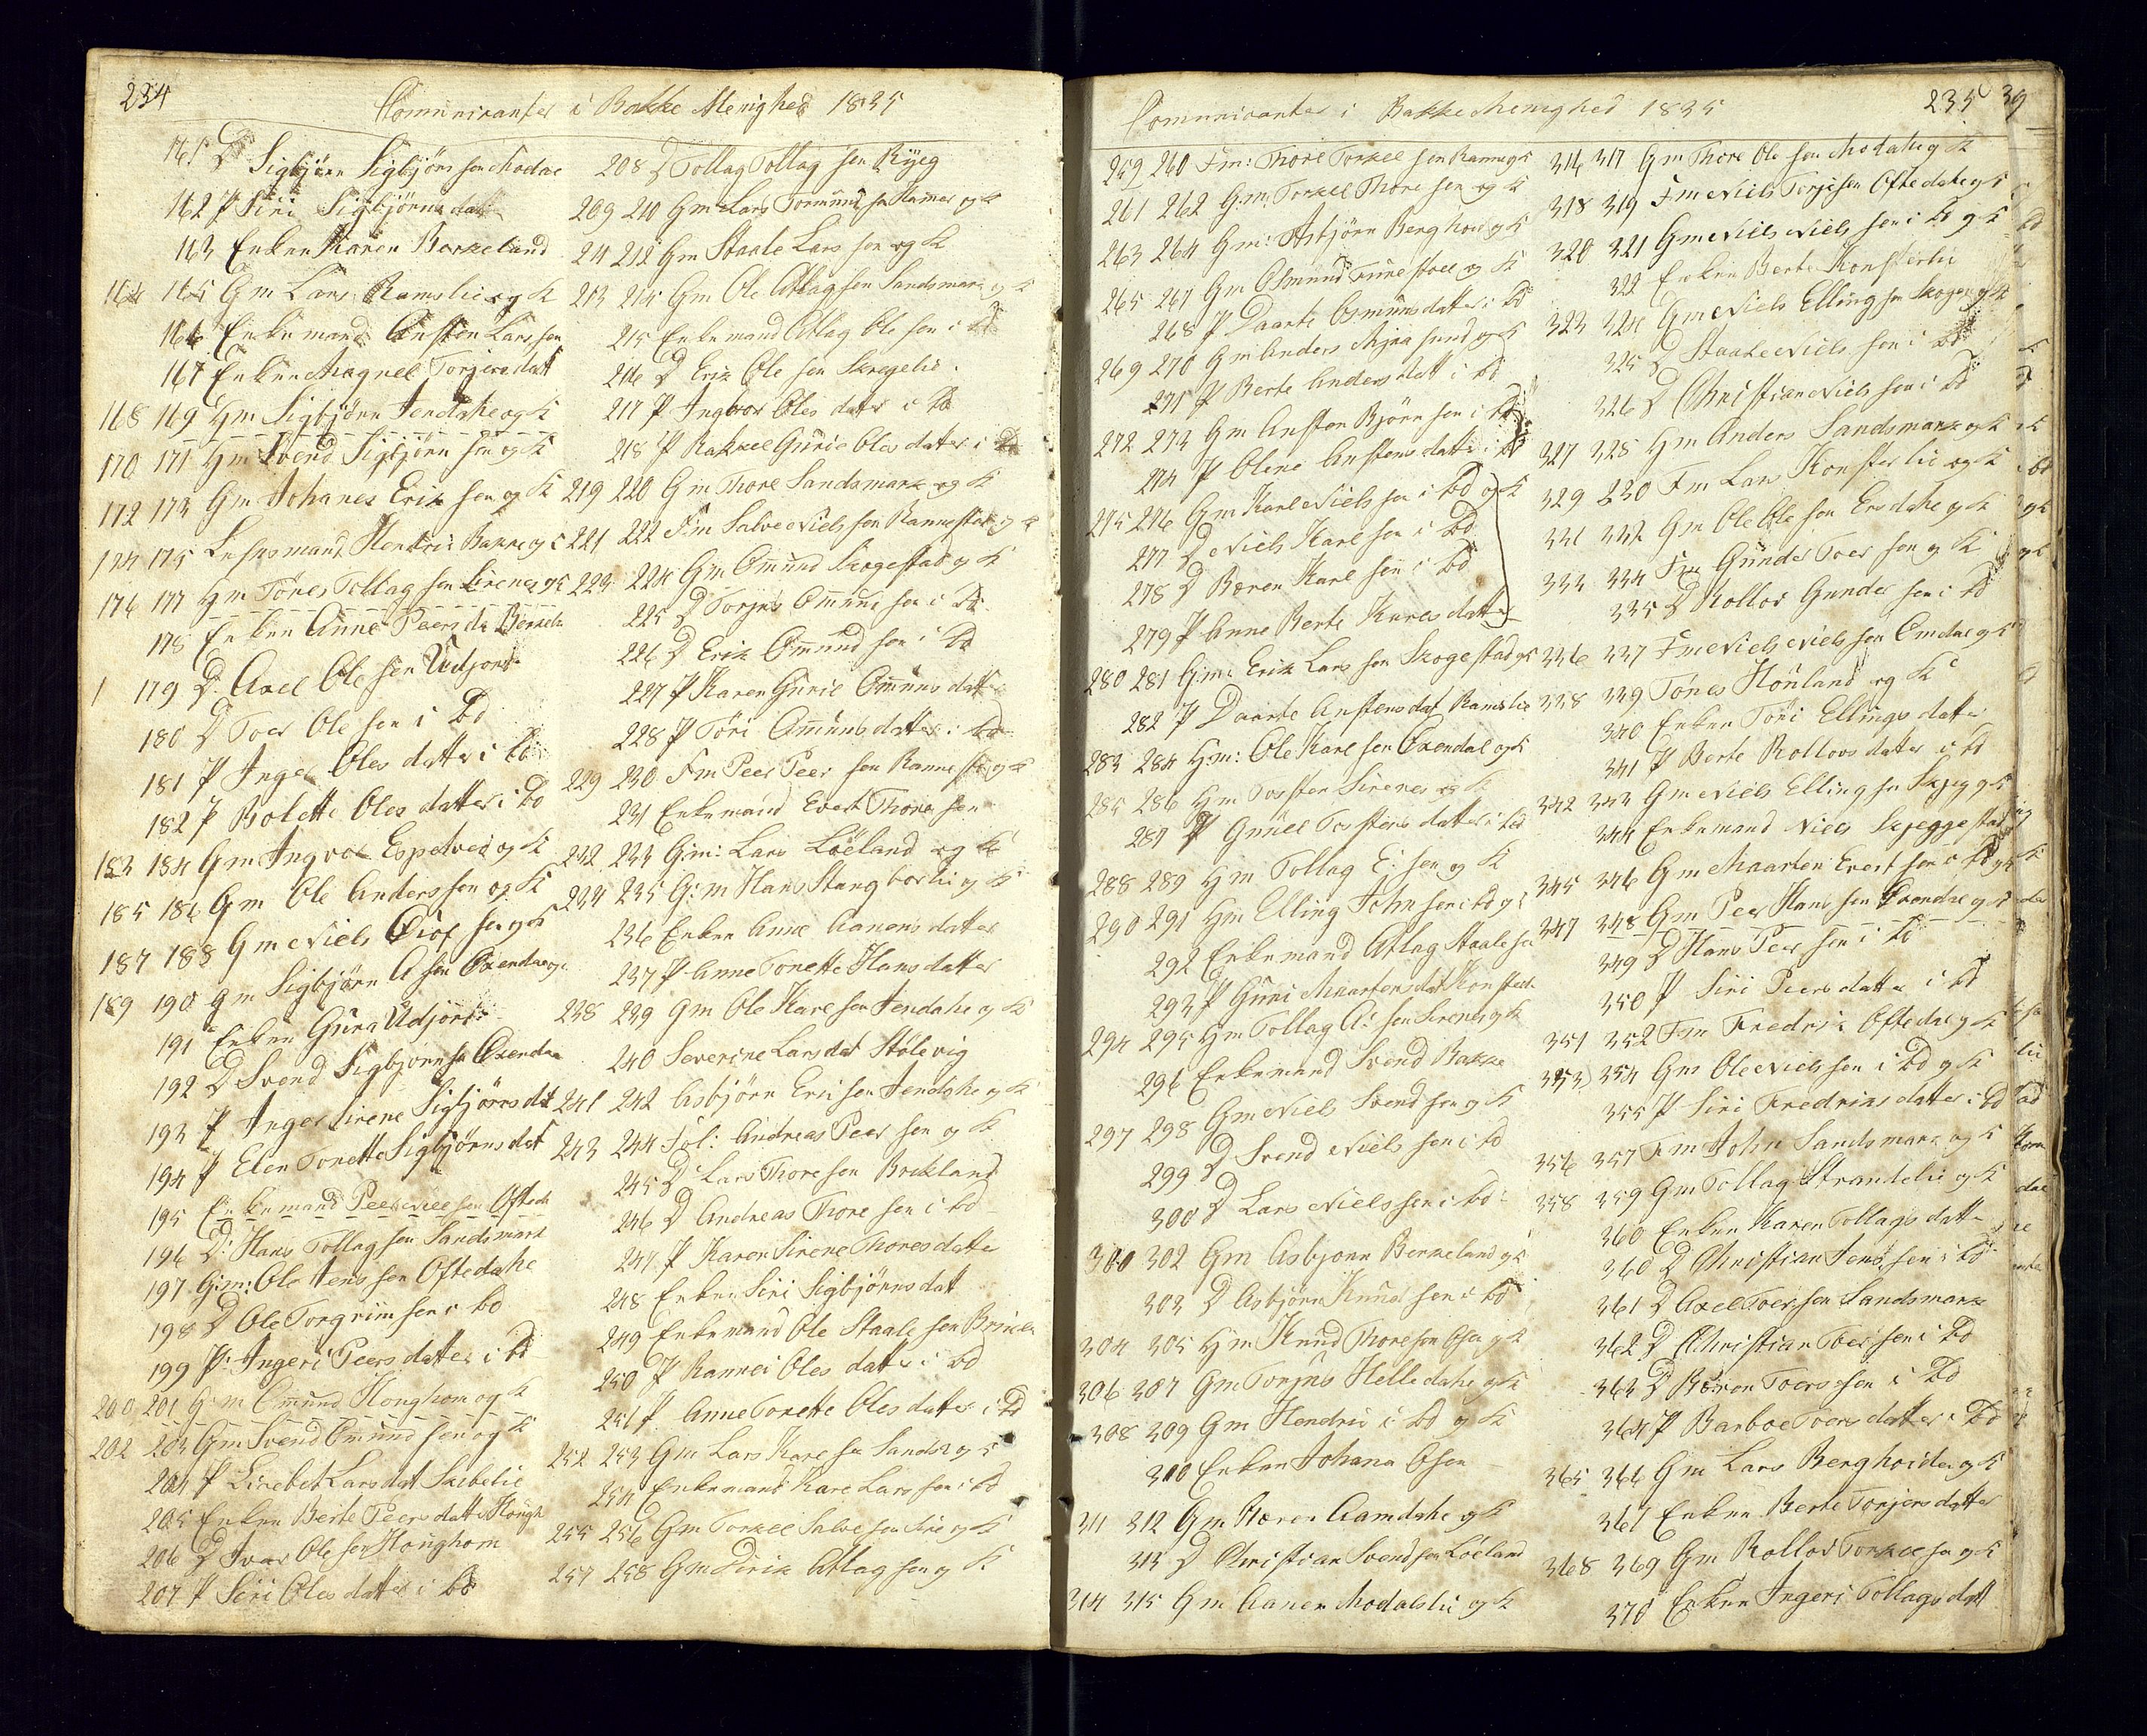 234
Communicanter i Bakke Menighed 1835
161 D Sigbjörn Sigbjörnsen Modal
162 P Siri Sigbjörns datt
163 Enken Karen Berkeland
164 165 Gm Lars Ramslie og K
166 Enkemand Ansten Larssen
167 Enken Magnel Torjers datt
168 169 Hm Sigbjörn Jendahl og K
170 171 Hm Svend Sigbjörn sen og K
172 173 Gm Johanes Erik sen og K
174 175 Lensmand Hendric Bakke og K
176 177 Hm Tönes Tollag sen Sirenes og K
178 Enken Anne Peers da
179 D. Axel Ole sen Udjord
180 D Toer Ole sen i bd
181 P Inger Oles datter i bd
182 P Bolette Oles datter i bd
183 184 Gm Ingvol Espetved og K
185 186 Gm Ole Anders sen og K
187 188 Gm Niels sen og K
189 190 Gm Sigbjörn A sen Oxendal og
191 Enken Guro Udjord
192 D Svend Sigbjörnsen Oxendal
193 P Inger Sirene Sigbjörnsdat
194 P Elen Tonette Sigbjörnsdat
195 Enkemand Peer Niel sen Ofteda
196 D: Hans Tollag sen Sandsmark
197 G:m: Ole Jens sen Oftedahl
198 D Ole Torgrim sen i bd
199 P: Ingeri Peers datter i bd
200 201 G:m Omund Honghom og K
202 203 Gm Svend Omund sen og K
204 P Lisebet Larsdat Skibelie
205 Enken Berte Peers datt Hongh
206 D Ivar Ole sen Honghom
207 P Siri Oles datter i bd
208 D Tollag Tollag sen Rÿeg
209 210 Gm Lars Tormund sen Hamer og K
211 212 Gm Staale Lars sen og K
213 214 Gm Ole Atlag sen Sandsmark og K
215 Enkemand Atlag Ole sen i bd
216 D Erik Ole sen Skregelie
217 P. Ingbor Oles dater i bd
218 P Rakael Gurie Oles datter i bd
219 220 Gm Thore Sandsmark og K
221 222 Fm Salve Niels sen Rannestad og K
223 224 Gm Omund Skogestad og K
225 D Torjus Omund sen i bd
226 D Erik Omund sen i bd
227 P Karen Gurie Omunds datt
228 P Töri Omunds datter i bd
229 230 Fm Peer Peer sen Rannesta og K
231 Enkemand Evert Thore sen
232 233 G:m: Lars Löeland og K
234 235 G:m Hans Stangborlie og K
236 Enken Anne Aanens datter
237 P Anne Tonette Hans datter
238 239 Gm Ole Karl sen Jendahl og K
240 Severine Lars dat Stölevig
241 242 Asbjörn Eric sen Jendahl og K
243 244 Sol: Andreas Peer sen og K
245 D Lars Thore sen Birkland
246 D Andreas Thore sen i bd
247 P Karen Sirene Thores datte
248 Enken Siri Sigbjörns datt
249 Enkemand Ole Staale sen
250 P Rannei Oles datter i bd
251 P Anne Tonette Oles datter i bd
252 253 Gm Lars Karl sen Sandsm og K
254 Enkemand Karl Lars sen i bd
255 256 Gm Torkel Salve sen Sire og K
257 258 Gm Dirik Atlag sen og K
235 39
Communicanter i Bakke Menighed 1835
259 260 Fm: Thore Torkel sen Ranne og K
261 262 G:m: Torkel Thore sen og K
263 264 Gm: Asbjörn Berghom og K
265 267 Gm Osmund Tunestvee og K
268 P Daarte Osmundsdatter i bd
269 270 Gm Anders Mjaasund og K
271 P Berte Anders datt i bd
272 273 Gm Ansten Björn sen i bd
274 P Olene Anstens datter i bd
275 276 Gm Karl Niels sen i bd og K
277 D Niels Karl sen i bd
278 D Bæren Karl sen i bd
279 P Anne Berte Karls datter
280 281 G:m: Erik Lars sen Skogestad og K
282 P Daarte Anstens dat Ramslie
283 284 H:m: Ole Karl sen Oxendal og K
285 286 Hm Tosten Sirenes og K
287 P Gunel Tostens datter i bd
288 289 Hm Tollag E: sen og K
290 291 Hm Elling John sen i bd og K
292 Enkemand Atlag Staale sen
293 P Guri Maartens dat Konsteli
294 295 Hm Tollag A: sen Sirenes og K
296 Enkemand Svend Bakke
297 298 Gm Niels Svend sen og K
299 D Svend Niels sen i bd
300 D Lars Niels sen i bd
300 302 Gm Asbjorn Berkeland og K
303 D Asbjörn Knud sen i bd
304 305 Hm Knud Thore sen Osen og K
306 307 Gm Torjus Helledahl og K
308 309 Gm Hendric i bd og K
310 Enken Johana Osen
311 312 Gm Bæren Aamdahl og K
313 D Christian Svend sen Löeland
314 315 Gm Aanen Modalslie og K
316 317 Gm Thore Ole sen Modahl og K
318 319 Fm Niels Torjesen Oftedahl og K
320 321 Gm Niels Niels sen i bd og K
322 Enken Berte Konsterlie
323 324 Gm Niels Elling sen Skogen og K
325 D Staale Niels sen i bd
326 D Christian Niels sen i bd
327 328 Hm Anders Sandsmark og K
329 230 Fm Lars Konsterlie og K
331 332 Gm Ole Ole sen Ersdahl og K
333 334 Fm Gunder Toer sen og K
335 D Rollov Gunder sen i bd
336 337 Fm Niels Niels sen Omdal og K
338 339 Tönes Höuland og K
340 Enken Töri Ellings datter
341 P Berte Rollovs datter i bd
342 343 Gm Niels Elling sen Skjeg og K
344 Enkemand Niels Skjeggestad
345 346 Gm Maarten Evert sen i bd og K
347 348 Gm Peer Hans sen Oxendal og K
349 D Hans Peer sen i bd
350 P Siri Peers datter i bd
351 352 Fm Fredric Oftedal og K
353 354 Gm Ole Niels sen i bd og K
355 P Siri Fredriks datter i bd
356 357 Fm John Sandsmark og K
358 359 Gm Tollag Strandelie og K
360 Enken Karen Tollags datte
360 D Christian Jens sen i bd
361 D Axel Toer sen Sandsmark
362 D Christian Toer sen i bd
363 D Bæren Toers sen i bd
364 P Barboe Toers datter i bd
365 366 Gm Lars Berghoiden og K
367 Enken Berte Torjers datter
368 369 Gm Rollov Torkel sen og K
370 Enken Ingeri Tollags datt